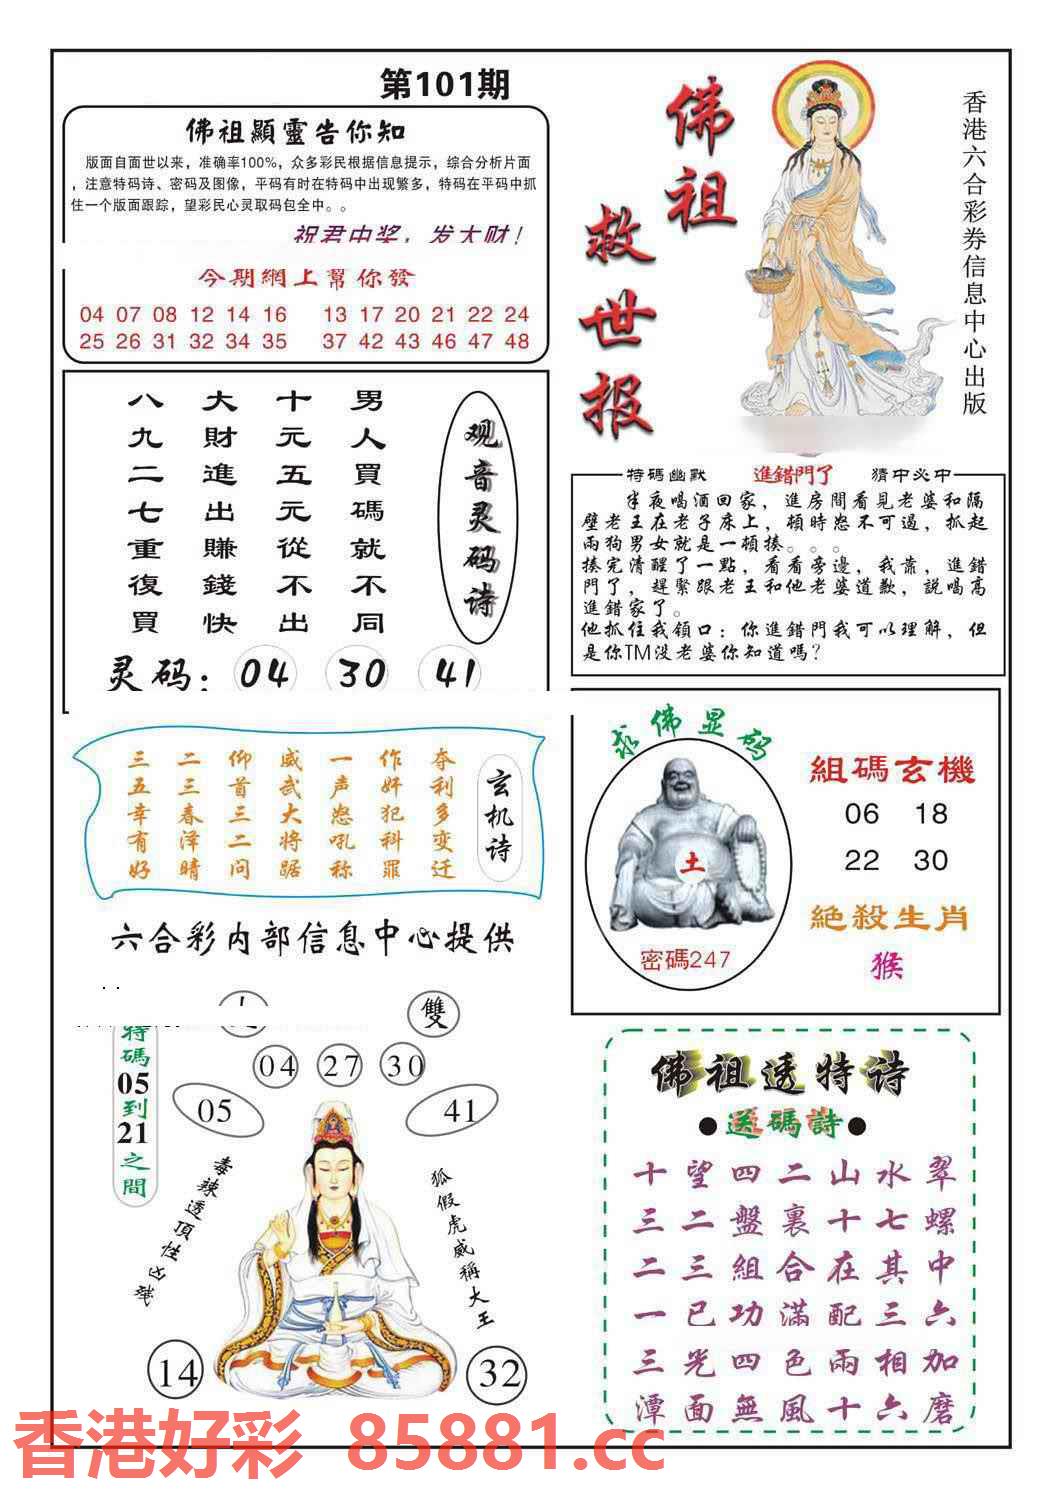 第101期
佛祖顯靈告你知
版面自面世以来，准确率100%，众多彩民根据信息提示，综合分析片面
，注意特码诗、密码及图像，平码有时在特码中出现繁多，特码在平码中抓
住一个版面跟踪，望彩民心灵取码包全中。。
祝君中奖，发大财！
今期網上幫你發
04 07 08 12 14 16 13 17 20 21 22 24
25 26 31 32 34 35 37 42 43 46 47 48
佛祖
救世报
香港六合彩券信息中心出版
观音灵码诗
男人買碼就不同
十元五元從不出
大財進出賺錢快
八九二七重復買
灵码：04 30 41
特碼幽默 進錯門了 猜中必中
半夜喝酒回家，進房間看見老婆和隔
壁老王在老子床上，頓時怒不可遏，抓起
兩狗男女就是一頓揍。。。
揍完清醒了一點，看看旁邊，我靠，進錯
門了，趕緊跟老王和他老婆道歉，説喝高
進錯家了。
他抓住我領口：你進錯門我可以理解，但
是你TM没老婆你知道嗎？
玄机诗
夺利多变迁
作奸犯科罪
一声怒吼称
威武大将踞
仰首三二问
二三春泽晴
三五幸有好
六合彩内部信息中心提供
求佛显码
土
密碼247
組碼玄機
06 18
22 30
絶殺生肖
猴
雙
特碼05到21之間
04 27 30
05 41
毒辣透頂性凶残
狐假虎威稱大王
14 32
佛祖透特诗
●送碼詩●
十望四二山水翠
三二盤裏十七螺
二三組合在其中
一已功滿配三六
三光四色兩相加
潭面無風十六磨
香港好彩 85881.cc